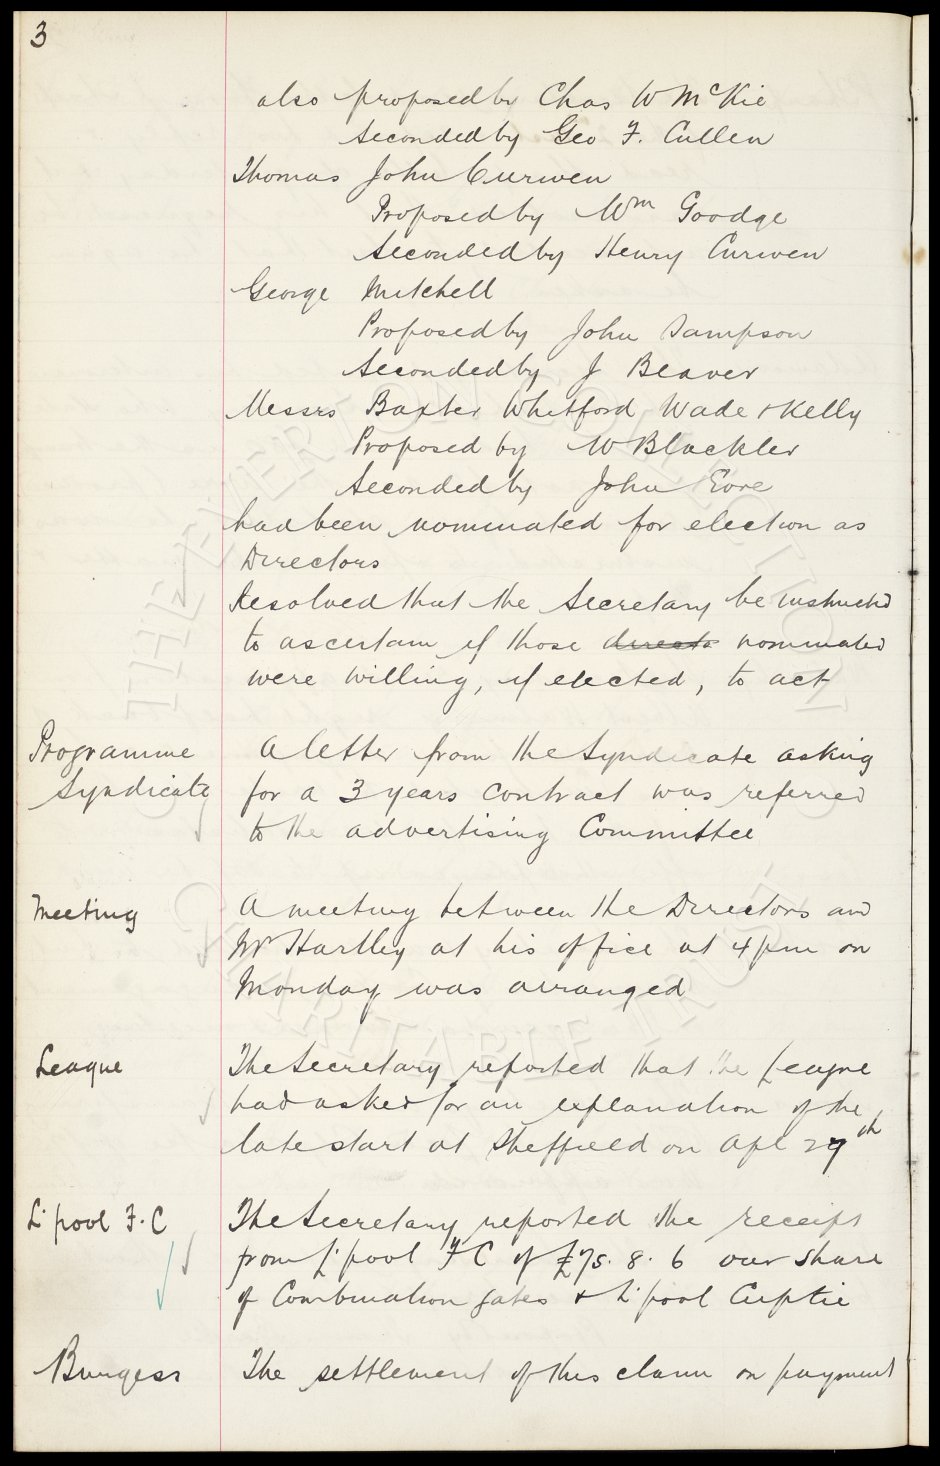 3
also proposed by Chas W McKie
Seconded by Geo F. Cullen
Thomas John Curwen
Proposed by Wm Goodge
Seconded by Henry Curwen
George Mitchell
Proposed by John Sampson
Seconded by J Beaver
Messrs Baxter Whitford Wade & Kelly
Proposed by W Blackler
Seconded by John Eore
had been nominated for election as
Directors
Resolved that the Secretary be instructed
to ascertain if those directs nominated
were willing, if elected, to act
Programme
Syndicate
A letter from the Syndicate asking
for a 3 years contract was referred
to the advertising Committee
Meeting
A meeting between the Directors and
Mr Hartley at his office at 4 pm on
Monday was arranged
League
The Secretary reported that the League
had asked for an explanation of the
late start at Sheffield on Apl 27th
L'pool F.C
The Secretary reported the receipt
from L'pool F C of £75. 8. 6 our share
of Combination gates & L'pool Cuptie
Burgess
The settlement of this claim on payment
THE EVERTON COLLECTION
CHARITABLE TRUST